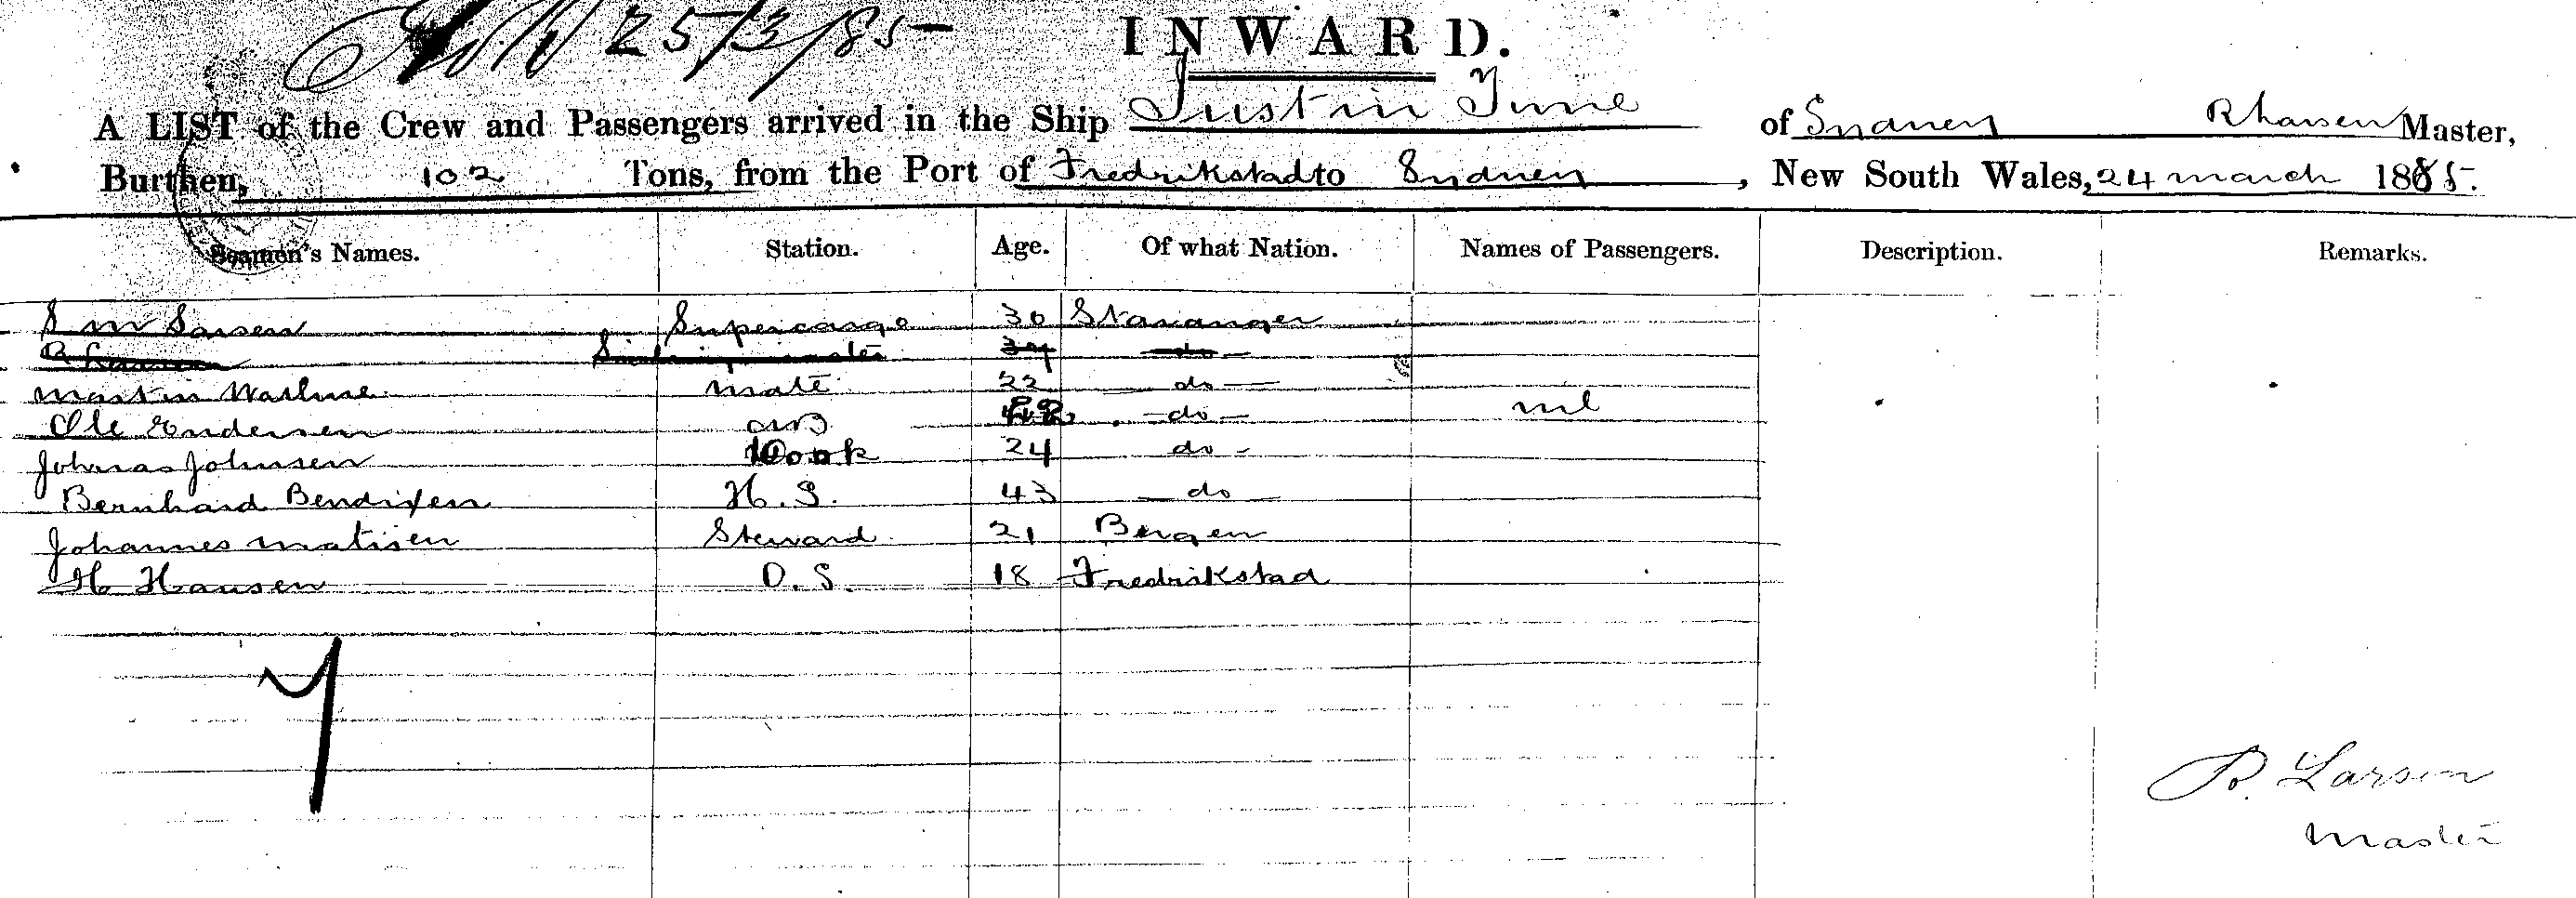 25/3/85
INWARD.
A LIST of the Crew and Passengers arrived in the Ship Just in Time of Sydney R Larsen Master,
Burthen, 102 Tons, from the Port of Fredrikstad to Sydney, New South Wales, 24 March 1885.
Seamen's Names. Station. Age. Of what Nation. Names of Passengers. Description. Remarks.
S M Larsen Supercargo 30 Stavanger
do
Martin mate 22 do
Ole Endersen AB do nil
Johnas Johnsen Cook 24 do
Bernhard Bendixen H.S. 43 do
Johannes Matisen Steward 21 Bergen
H Hansen O.S. 18 Fredrikstad
7
R. Larsen
Master